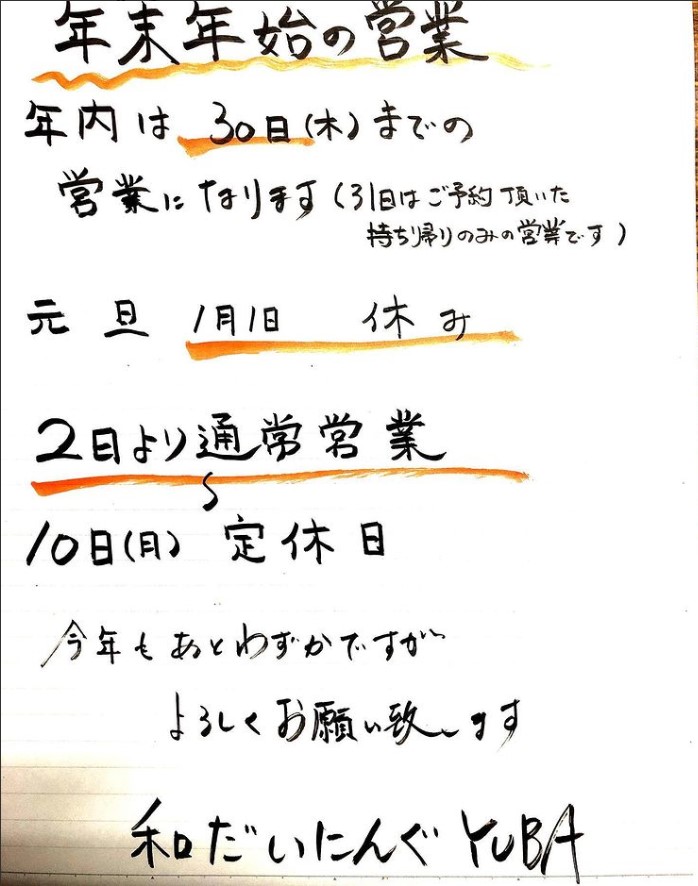 年末年始の営業
年内は 30日(木)までの
営業になります(31日はご予約頂いた
持ち帰りのみの営業です)
元旦 1月1日 休み
2日より通常営業
〜
10日(月) 定休日
今年もあとわずかですが
よろしくお願い致します
和だいにんぐ YUBA